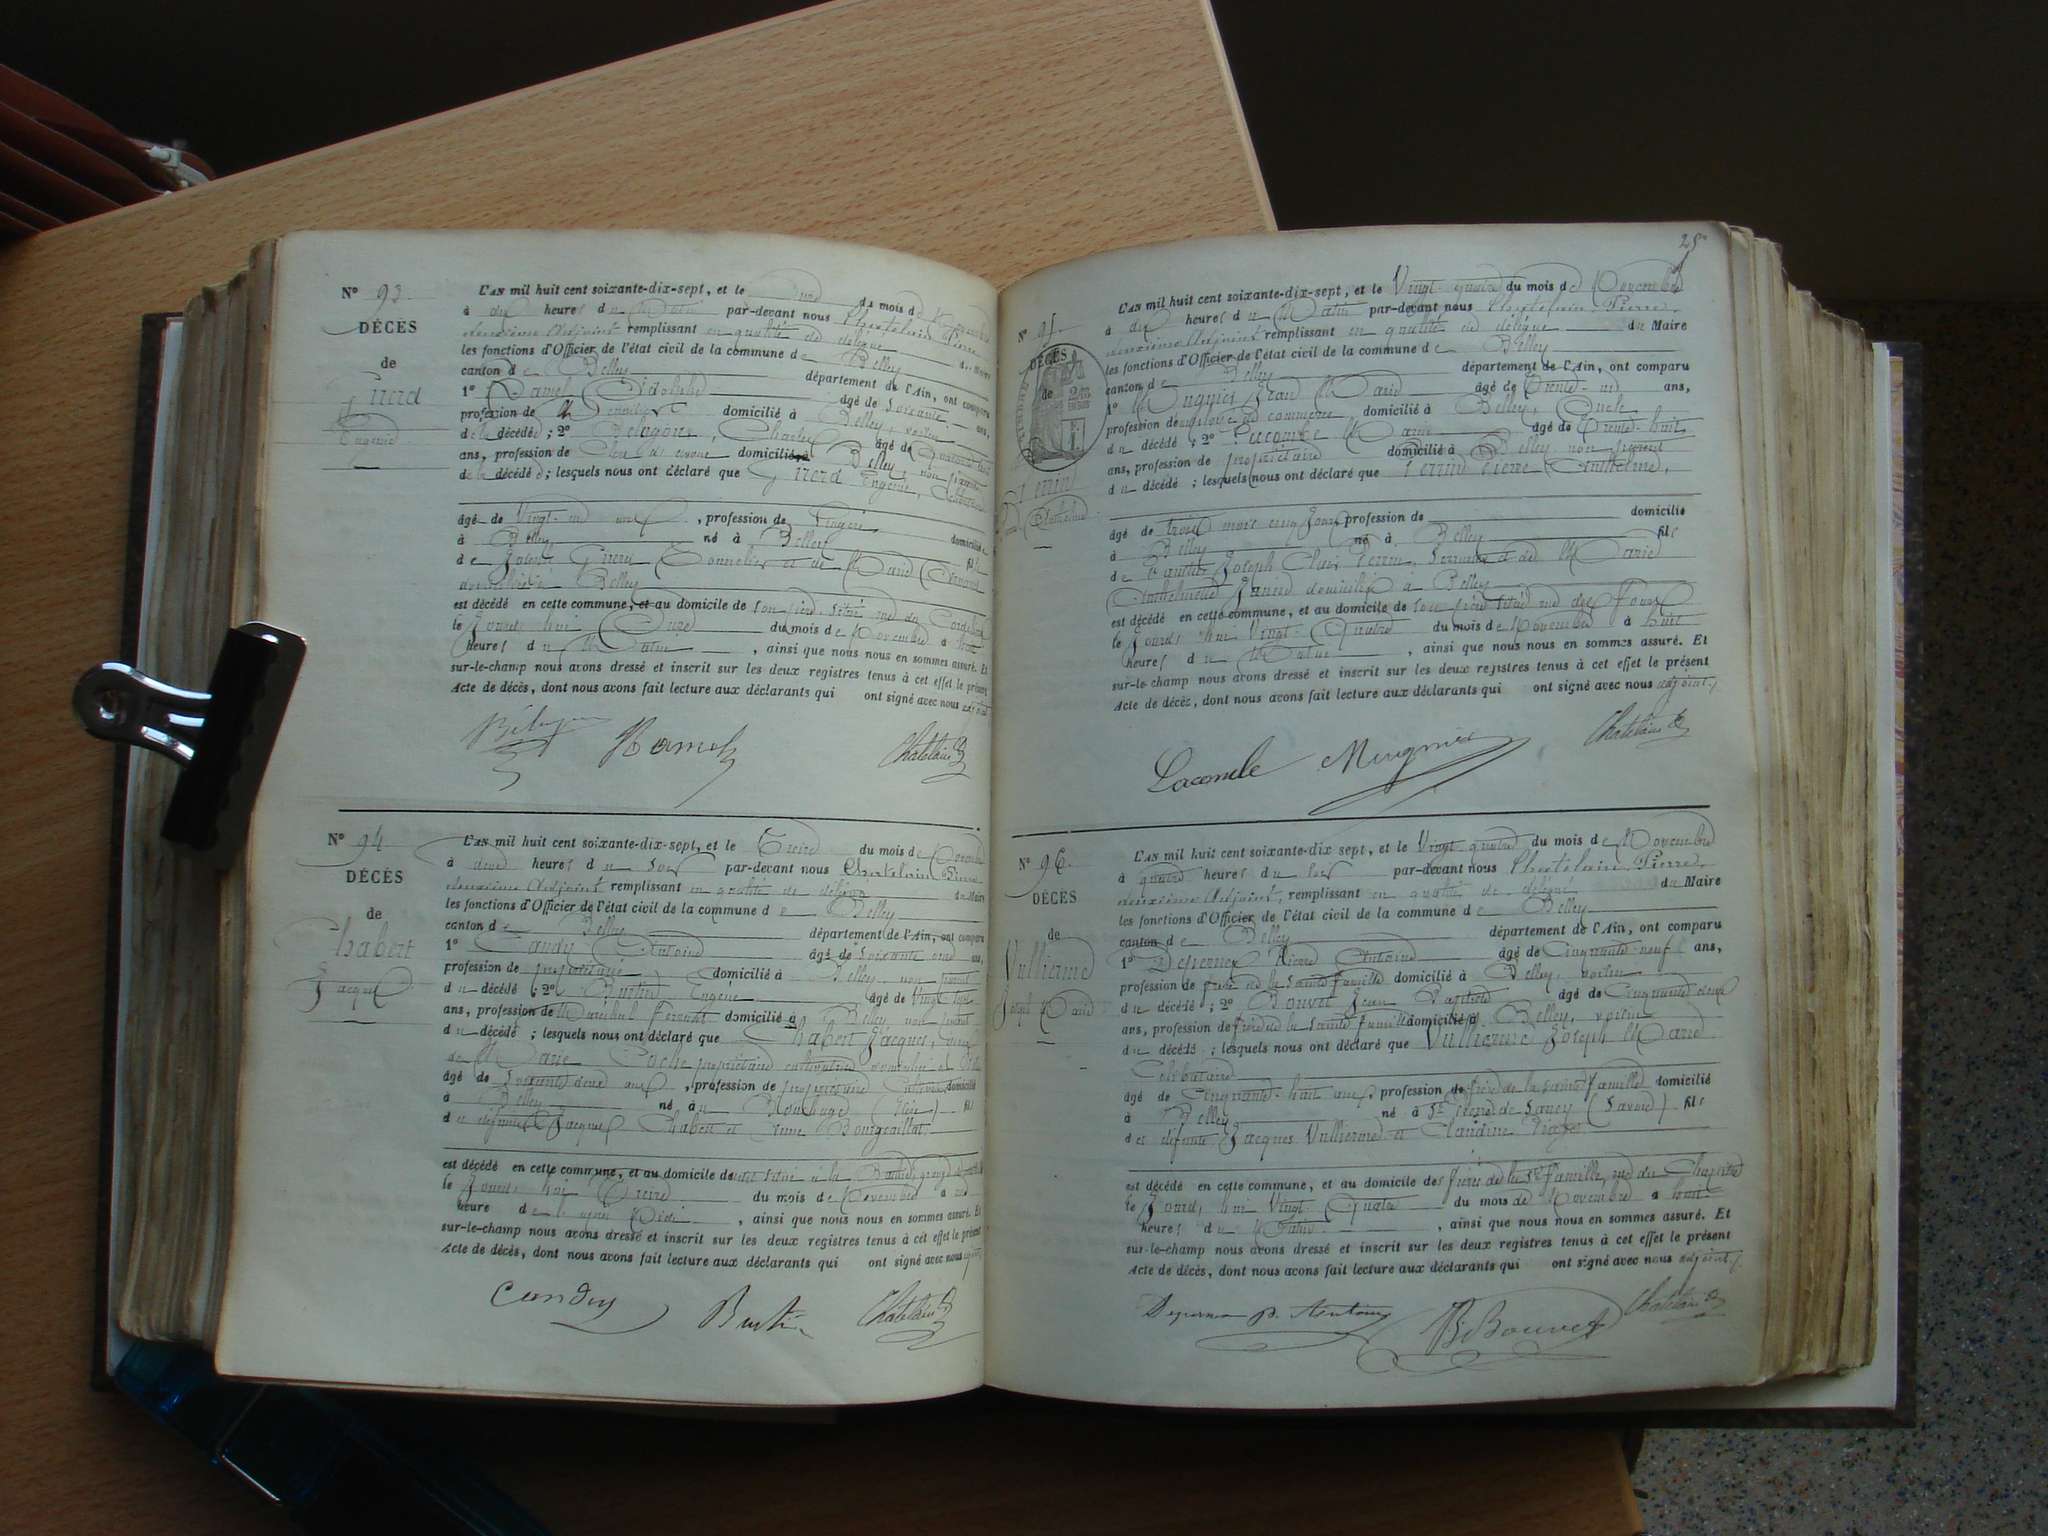 N° 93.
DÉCÈS
de
Eugénie
L'AN mil huit cent soixante-dix-sept, et le du mois de
à dix heures du Matin par-devant nous Chatelain Pierre
deuxième Adjoint remplissant en qualité de délégué du Maire
les fonctions d'Officier de l'état civil de la commune de Belley
canton de Belley département de l'Ain, ont comparu
1° âgé de soixante ans,
profession de domicilié à Belley, voisin
de la décédée ; 2° Charles âgé de
ans, profession de domicilié à Belley, non parent
de la décédée ; lesquels nous ont déclaré que Eugénie,
âgé de Vingt-un ans, profession de Lingère domicilié
à Belley né à Belley fille
de Joseph Tonnelier et de Marie
domiciliés à Belley
est décédé en cette commune, et au domicile de son père, situé rue des Cordeliers
le Jourd'hui Onze du mois de Novembre à
heures du Matin, ainsi que nous nous en sommes assuré. Et
sur-le-champ nous avons dressé et inscrit sur les deux registres tenus à cet effet le présent
Acte de décès, dont nous avons fait lecture aux déclarants qui ont signé avec nous adjoint
Ramel Chatelain
N° 94
DÉCÈS
de
Chabert
Jacques
L'AN mil huit cent soixante-dix-sept, et le Treize du mois de Novembre
à deux heures du soir par-devant nous Chatelain Pierre
deuxième Adjoint remplissant en qualité de délégué du Maire
les fonctions d'Officier de l'état civil de la commune de Belley
canton de Belley département de l'Ain, ont comparu
1° Candy Antoine âgé de soixante ans,
profession de propriétaire domicilié à Belley, non parent
du décédé ; 2° Burtin Eugène âgé de Vingt-huit
ans, profession de Maréchal Ferrant domicilié à Belley non parent
du décédé ; lesquels nous ont déclaré que Chabert Jacques,
de Marie propriétaire cultivatrice domiciliée à Belley
âgé de soixante-deux ans, profession de propriétaire Cultivateur domicilié
à Belley né à fils
des défunts Jacques Chabert et Anne Bourgeaillat
est décédé en cette commune, et au domicile situé à la
le Jourd'hui Treize du mois de Novembre à une
heure de Midi, ainsi que nous nous en sommes assuré. Et
sur-le-champ nous avons dressé et inscrit sur les deux registres tenus à cet effet le présent
Acte de décès, dont nous avons fait lecture aux déclarants qui ont signé avec nous adjoint
Candy Burtin Chatelain
25
N° 95.
DÉCÈS
de
Perrin
L'AN mil huit cent soixante-dix-sept, et le Vingt-quatre du mois de Novembre
à dix heures du Matin par-devant nous Chatelain Pierre
deuxième Adjoint remplissant en qualité de délégué du Maire
les fonctions d'Officier de l'état civil de la commune de Belley
canton de Belley département de l'Ain, ont comparu
1° Mugnier Jean Marie âgé de Trente-un ans,
profession de de commerce domicilié à Belley, Oncle
du décédé ; 2° Lacombe Marie âgé de Trente-huit
ans, profession de propriétaire domicilié à Belley non parent
du décédé ; lesquels nous ont déclaré que Perrin Pierre Anthelme,
âgé de trois mois cinq jours profession de domicilié
à Belley né à Belley fils
de Joseph Perrin, et de Marie
domiciliés à Belley
est décédé en cette commune, et au domicile de son père situé rue des
le Jourd'hui Vingt-Quatre du mois de Novembre à huit
heures du Matin, ainsi que nous nous en sommes assuré. Et
sur-le-champ nous avons dressé et inscrit sur les deux registres tenus à cet effet le présent
Acte de décès, dont nous avons fait lecture aux déclarants qui ont signé avec nous adjoint.
Lacombe Mugnier Chatelain
N° 96.
DÉCÈS
de
Vullierme
Joseph Marie
L'AN mil huit cent soixante-dix sept, et le Vingt-quatre du mois de Novembre
à quatre heures du soir par-devant nous Chatelain Pierre
deuxième Adjoint, remplissant en qualité de délégué du Maire
les fonctions d'Officier de l'état civil de la commune de Belley
canton de Belley département de l'Ain, ont comparu
1° Depernex Pierre Antoine âgé de Cinquante-neuf ans,
profession de frère de la Sainte famille domicilié à Belley, voisin
du décédé ; 2° Bouvet Jean Baptiste âgé de Cinquante deux
ans, profession de frère de la Sainte famille domicilié à Belley, voisin
du décédé ; lesquels nous ont déclaré que Vullierme Joseph Marie
Célibataire
âgé de Cinquante-huit ans, profession de frère de la sainte famille domicilié
à Belley né à St (Savoie) fils
des défunts Jacques Vullierme et Claudine
est décédé en cette commune, et au domicile des frères de la Ste famille, rue du Chapitre
le Jourd'hui Vingt-Quatre du mois de Novembre à huit
heures du Matin, ainsi que nous nous en sommes assuré. Et
sur-le-champ nous avons dressé et inscrit sur les deux registres tenus à cet effet le présent
Acte de décès, dont nous avons fait lecture aux déclarants qui ont signé avec nous adjoint.
Antoine Bouvet Chatelain